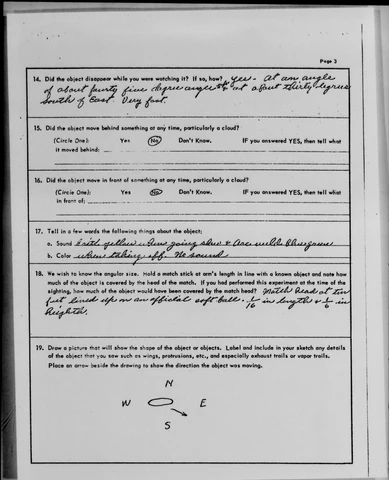 Page 3
14. Did the object disappear while you were watching it? If so, how? Yes - At an angle
of about fourty five degree angle & at about thirty degrees
south of East. Very fast.
15. Did the object move behind something at any time, particularly a cloud?
(Circle One): Yes No Don't Know. IF you answered YES, then tell what
it moved behind:
16. Did the object move in front of something at any time, particularly a cloud?
(Circle One): Yes No Don't Know. IF you answered YES, then tell what
in front of:
17. Tell in a few words the following things about the object:
a. Sound yellow when going slow & blue green
b. Color when taking off. No sound
18. We wish to know the angular size. Hold a match stick at arm's length in line with a known object and note how
much of the object is covered by the head of the match. If you had performed this experiment at the time of the
sighting, how much of the object would have been covered by the match head? Match head at ten
feet lined up on an official soft ball. 1/16 in length & 1/6 in
height.
19. Draw a picture that will show the shape of the object or objects. Label and include in your sketch any details
of the object that you saw such as wings, protrusions, etc., and especially exhaust trails or vapor trails.
Place an arrow beside the drawing to show the direction the object was moving.
N
W E
S